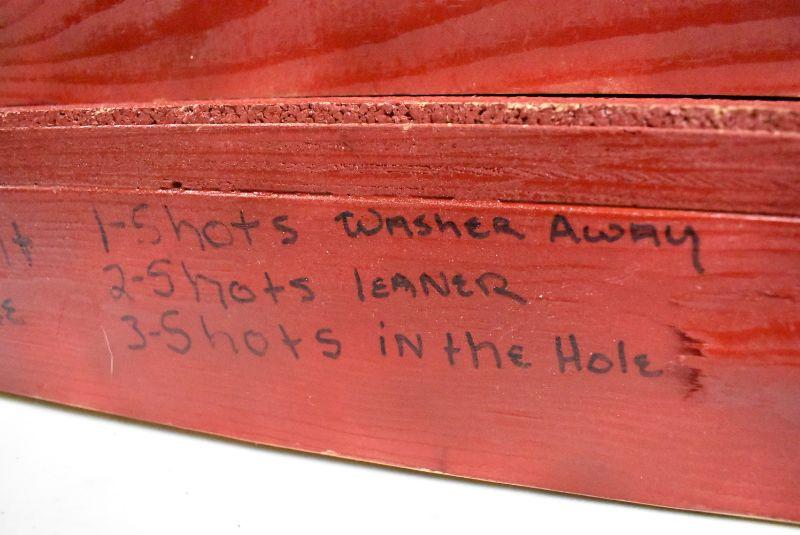 1-Shots WASHER AWAY
2-Shots lEANER
3-Shots iN the Hole